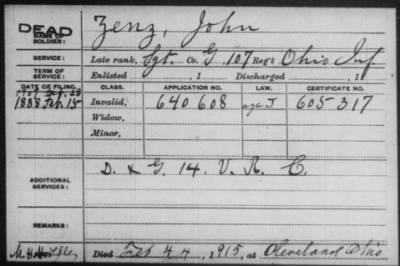 DEAD
NAME OF
SOLDIER:
Zenz, John
SERVICE:
Late rank, Sgt. Co. G, 107 Reg't Ohio Inf.
TERM OF
SERVICE:
Enlisted , 1 Discharged , 1
DATE OF FILING. CLASS. APPLICATION NO. CERTIFICATE NO.
1888 Feb. 15 Invalid, 640 608 605 317
Widow,
Minor,
ADDITIONAL
SERVICES:
D. & G. 14. V. R. C.
REMARKS:
Died Feb 1915, at Cleveland Ohio